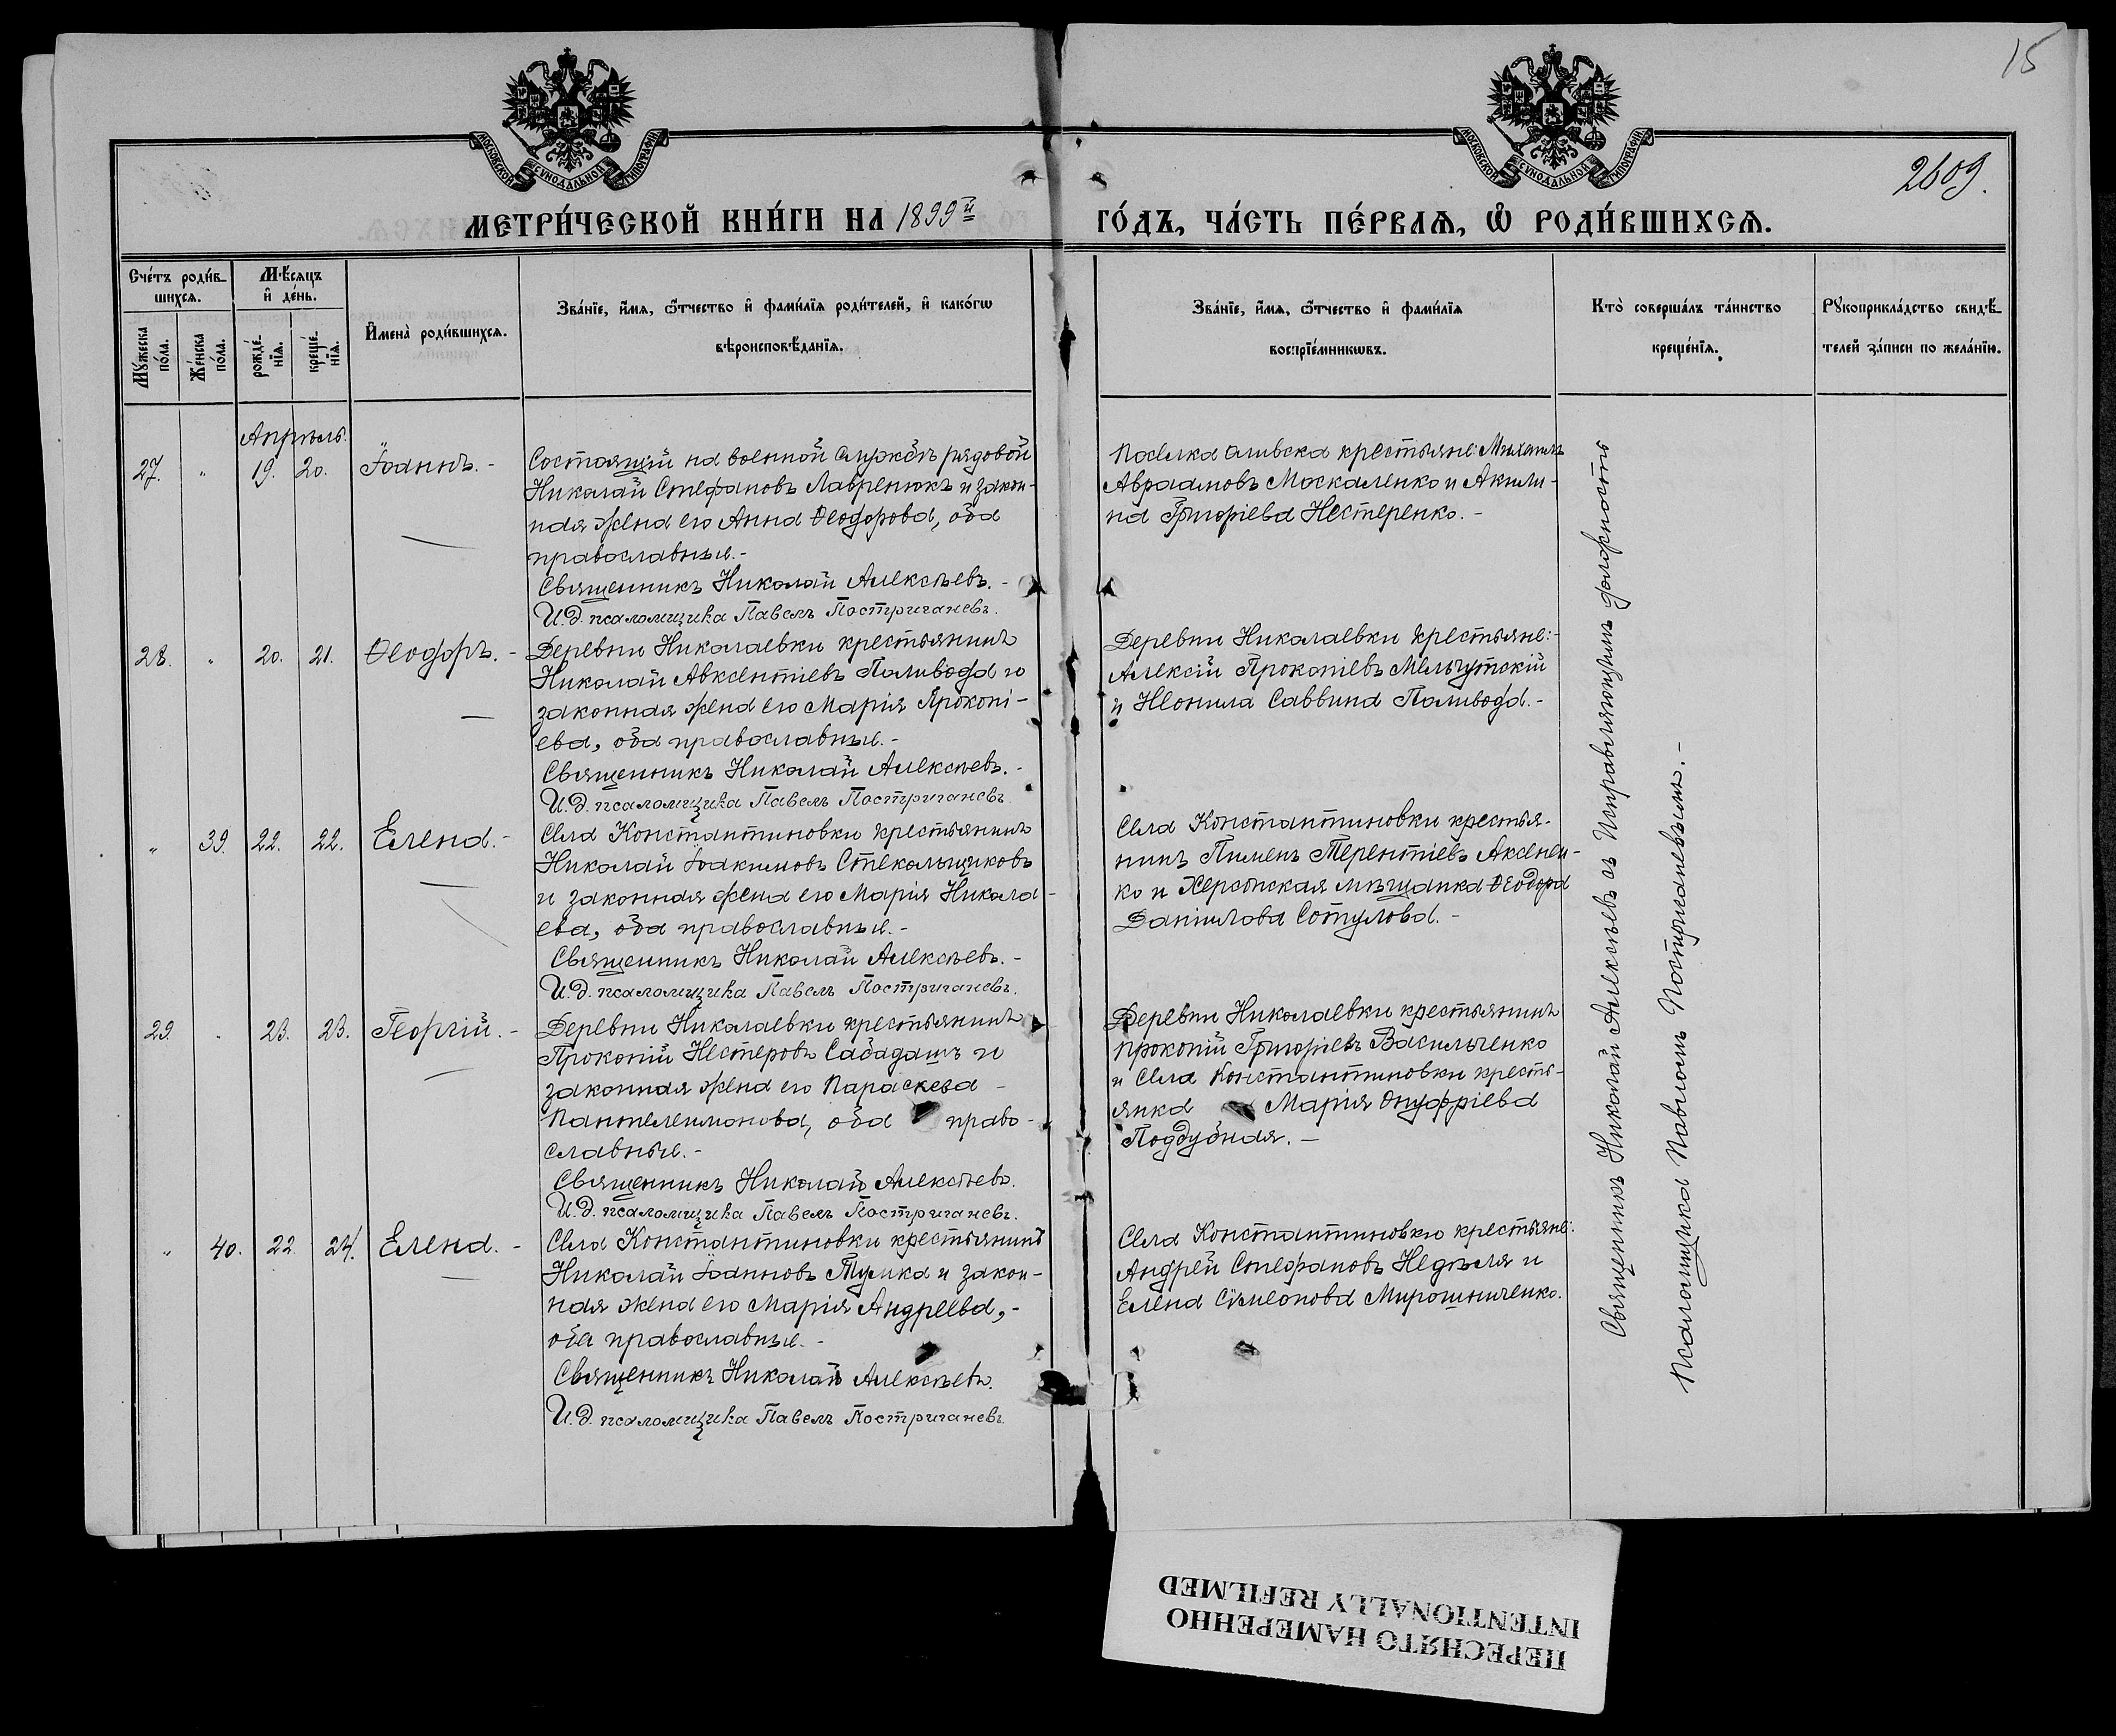 15
МОСКОВСКОЙ СѴНОДАЛЬНОЙ ТИПОГРАФІИ
МОСКОВСКОЙ СѴНОДАЛЬНОЙ ТИПОГРАФІИ
2609.
МЕТРИ́ЧЕСКОЙ КНИ́ГИ НА 1899й ГО́ДЪ, ЧА́СТЬ ПЕ́РВАЯ, Ѡ҆ РОДИ́ВШИХСЯ.
Сче́тъ роди́в-
шихся.
Мѣ́сяцъ
и҆ де́нь.
Мꙋ́жеска
по́ла.
Же́нска
по́ла.
рожде́-
нїя.
креще́-
нїя.
И҆мена̀ роди́вшихся.
Зва́нїе, и҆́мя, ѻ҆́тчество и҆ фами́лїя роди́телей, и҆ како́гѡ
вѣроисповѣ́данїя.
Зва́нїе, и҆́мя, ѻ҆́тчество и҆ фами́лїя
воспрїе́мникѡвъ.
Кто̀ соверша́лъ та́инство
креще́нїя.
Рꙋкоприкла́дство свидѣ́-
телей за́писи по жела́нїю.
Апрѣль.
27. " 19. 20. Іоаннъ.-
Состоящій на военной службѣ рядовой
Николай Стефановъ Лавренюкъ и закон-
ная жена его Анна Ѳеодорова, оба
православные.-
Священникъ Николай Алексѣевъ.-
И.д. псаломщика Павелъ Постриганевъ.
Поселка крестьяне: Михаилъ
Авраамовъ Москаленко и Акили-
на Григоріева Нестеренко.-
28. " 20. 21. Ѳеодоръ.-
Деревни Николаевки крестьянинъ
Николай Авксентіевъ Паливода и
законная жена его Марія Прокопі-
ева, оба православные.-
Священникъ Николай Алексѣевъ.-
И.д. псаломщика Павелъ Постриганевъ
Деревни Николаевки крестьяне:-
Алексій Прокопіевъ
и Неонила Саввина Паливода.-
" 39. 22. 22. Елена.-
Села Константиновки крестьянинъ
Николай Іоакимовъ Стекольщиковъ
и законная жена его Марія Никола-
ева, оба православные.-
Священникъ Николай Алексѣевъ.-
И.д. псаломщика Павелъ Постриганевъ.
Села Константиновки крестья-
нинъ Пименъ Терентіевъ Аксенен-
ко и Херсонская мѣщанка Ѳеодора
Даніилова Сотулова.-
29. " 23. 23. Георгій.-
Деревни Николаевки крестьянинъ
Прокопій Нестеровъ Сабадашъ и
законная жена его Параскева -
Пантелеимонова, оба право-
славные.-
Священникъ Николай Алексѣевъ.
И.д. псаломщика Павелъ Постриганевъ.
Деревни Николаевки крестьянинъ
Прокопій Григоріевъ Васильченко
и Села Константиновки кресть-
янка Марія Онуфріева
Поддубная.-
" 40. 22. 24. Елена.-
Села Константиновки крестьянинъ
Николай Іоанновъ Тумка и закон-
ная жена его Марія Андреева,-
оба православные.-
Священникъ Николай Алексѣевъ.
И.д. псаломщика Павелъ Постриганевъ.
Села Константиновки крестьяне:
Андрей Стефановъ Недѣля и
Елена Сімеонова Мирошниченко.
Священникъ Николай Алексѣевъ съ Исправляющимъ должность
Псаломщика Павломъ Постриганевымъ.-
ПЕРЕСНЯТО НАМЕРЕННО
INTENTIONALLY REFILMED